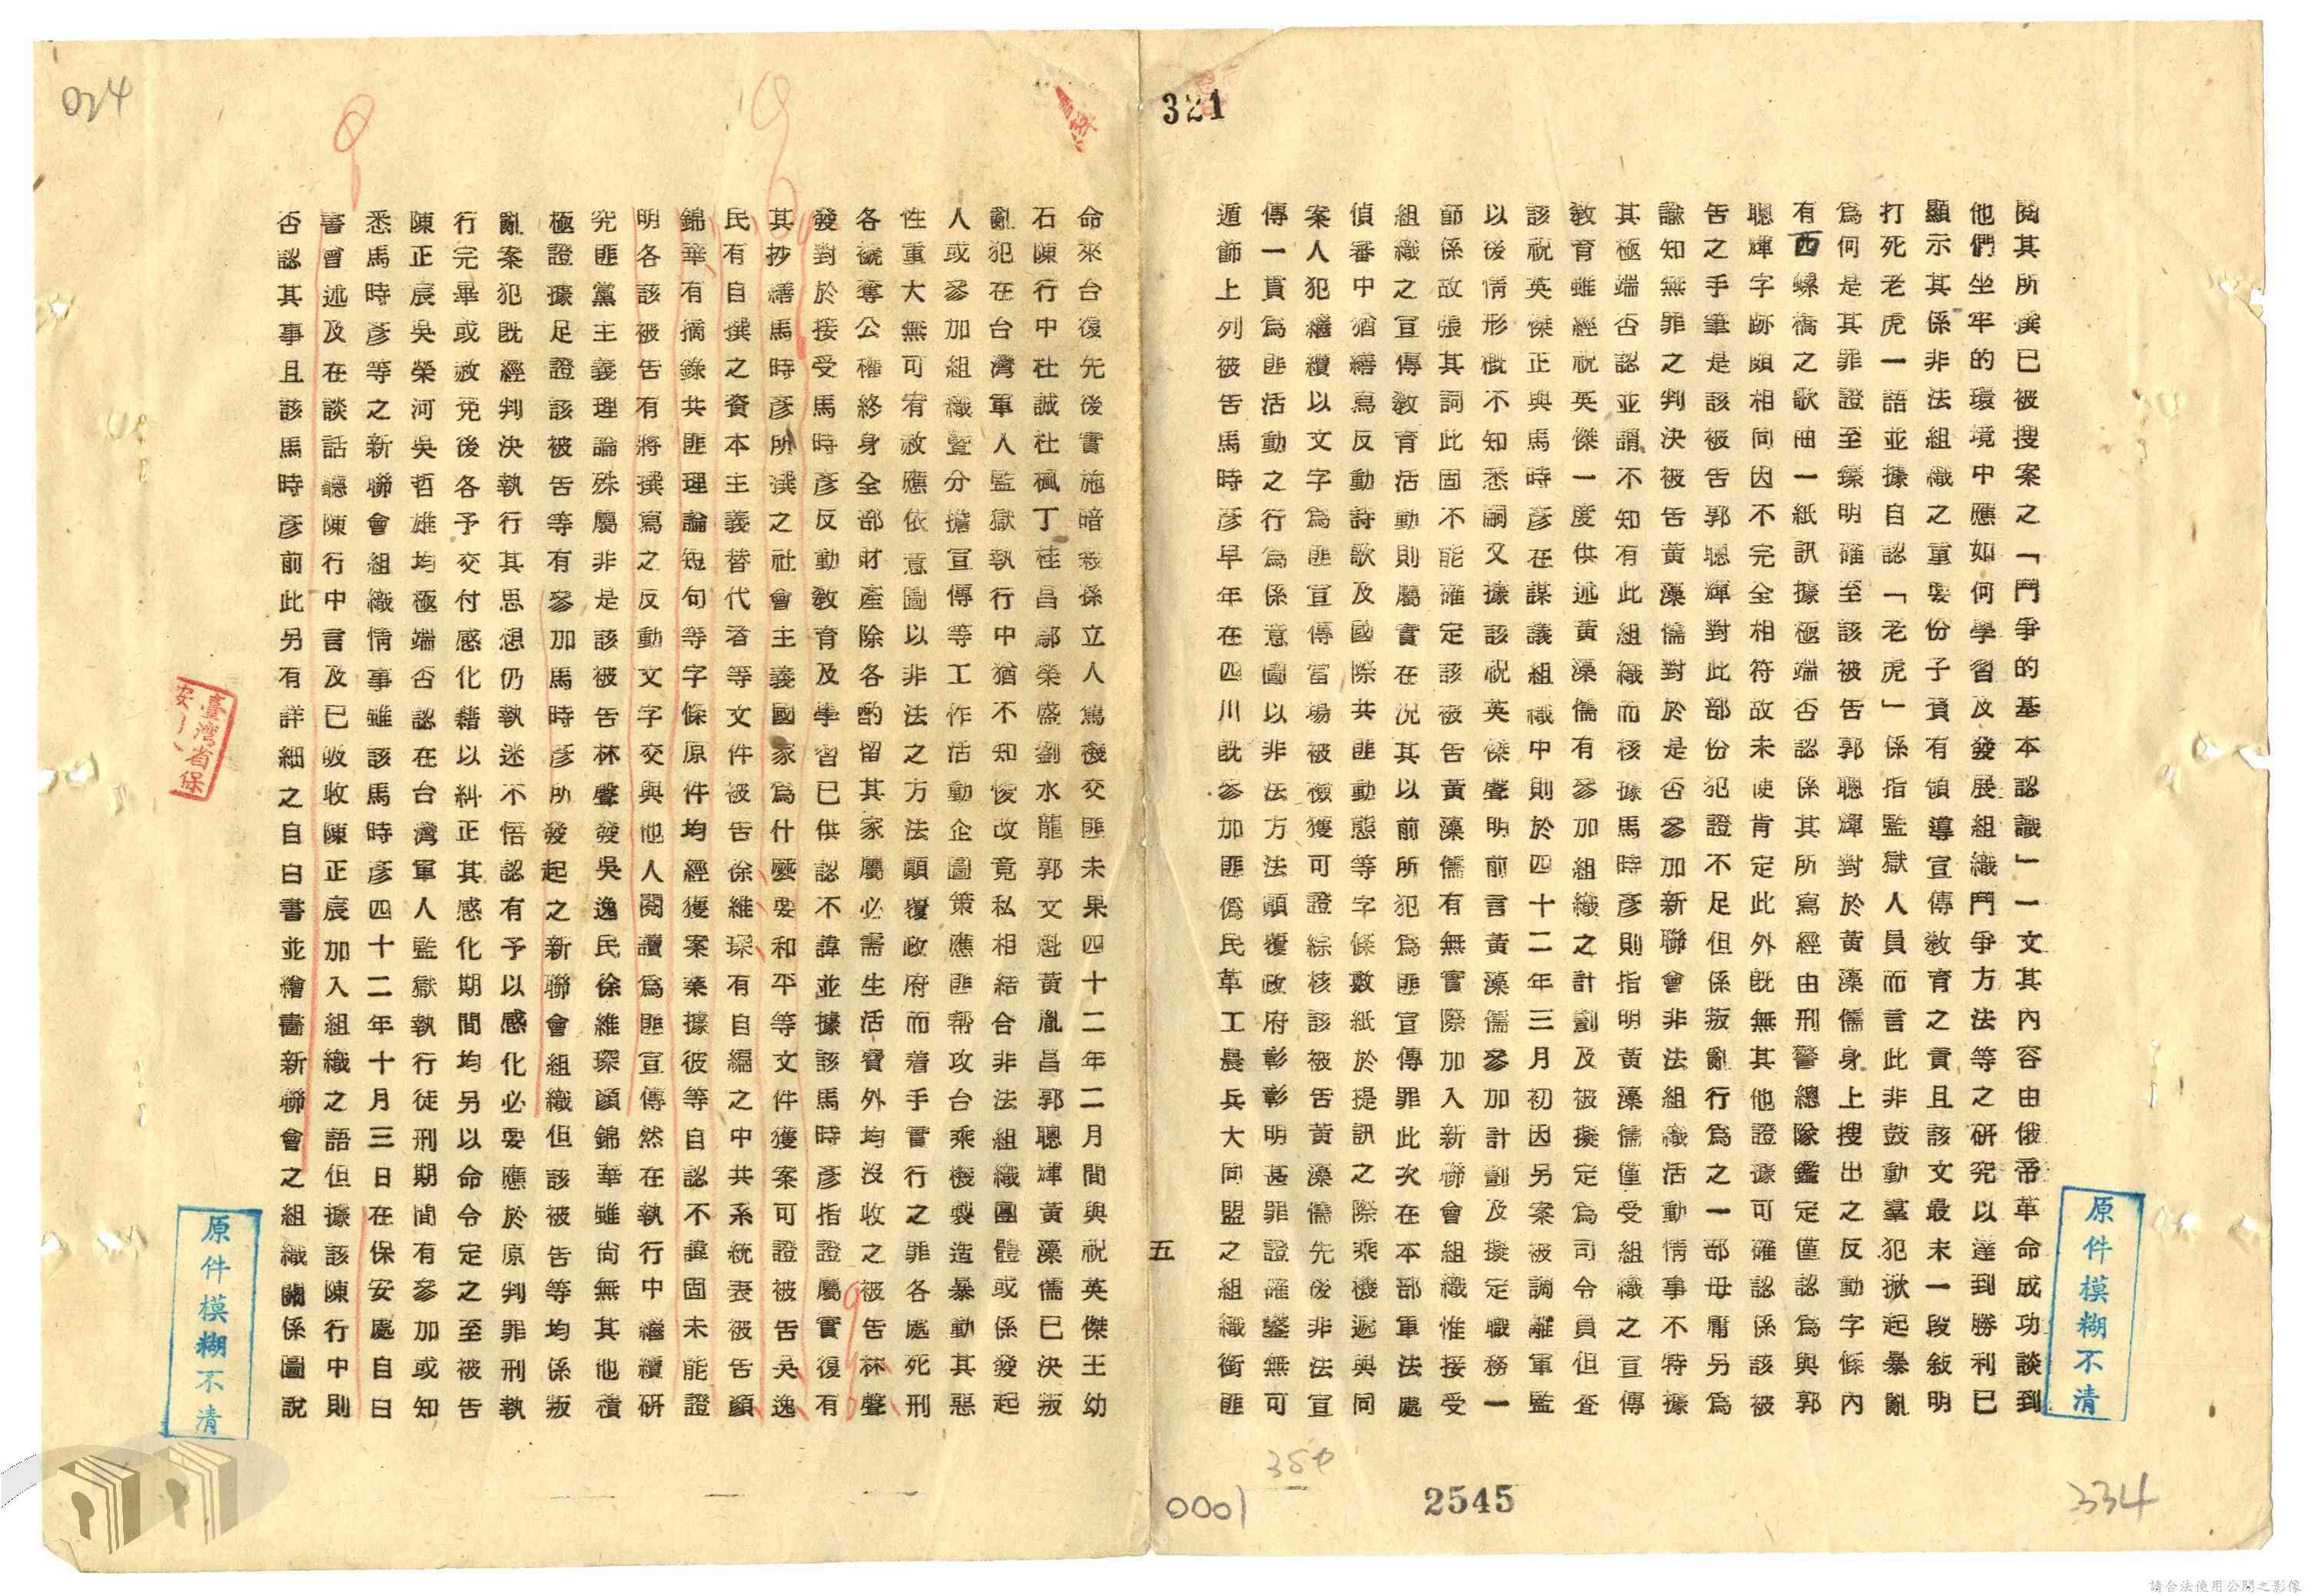 321
閱其所撰已被搜案之「鬥爭的基本認識」一文其內容由俄帝革命成功談到
他們坐牢的環境中應如何學習及發展組織鬥爭方法等之研究以達到勝利已
顯示其係非法組織之重要份子負有領導宣傳教育之責且該文最未一段敘明
打死老虎一語並據自認「老虎」係指監獄人員而言此非鼓動羣犯掀起暴亂
爲何是其罪證至臻明確至該被告郭聰輝對於黃藻儒身上搜出之反動字條內
有西螺橋之歌曲一紙訊據極端否認係其所寫經由刑警總隊鑑定僅認爲與郭
聰輝字跡頗相同因不完全相符故未便肯定此外既無其他證據可確認係該被
告之手筆是該被告郭聰輝對此部份犯證不足但係叛亂行爲之一部毋庸另爲
諭知無罪之判決被告黃藻儒對於是否參加新聯會非法組織活動情事不特據
其極端否認並謂不知有此組織而核據馬時彥則指明黃藻儒僅受組織之宣傳
教育雖經祝英傑一度供述黃藻儒有參加組織之計劃及被擬定爲司令員但查
該祝英傑正與馬時彥在謀議組織中則於四十二年三月初因另案被調離軍監
以後情形概不知悉嗣又據該祝英傑聲明前言黃藻儒參加計劃及擬定職務一
節係故張其詞此固不能確定該被告黃藻儒有無實際加入新聯會組織惟接受
組織之宣傳教育活動則屬實在況其以前所犯爲匪宣傳罪此次在本部軍法處
偵審中猶繕寫反動詩歌及國際共匪動態等字條數紙於提訊之際乘機遞與同
案人犯繼續以文字爲匪宣傳當場被檢獲可證綜核該被告黃藻儒先後非法宣
傳一貫爲匪活動之行爲係意圖以非法方法顛覆政府彰彰明甚罪證確鑿無可
遁飾上列被告馬時彥早年在四川既參加匪僞民革工農兵大同盟之組織銜匪
五
命來台復先後實施暗殺孫立人駕機交匪未果四十二年二月間與祝英傑王幼
石陳行中杜誠杜楓丁桂昌鄢榮盛劉水龍郭文魁黃胤昌郭聰輝黃藻儒已決叛
亂犯在台灣軍人監獄執行中猶不知悛改竟私相結合非法組織團體或係發起
人或參加組織暨分擔宣傳等工作活動企圖策應匪帮攻台乘機製造暴動其惡
性重大無可宥赦應依意圖以非法之方法顛覆政府而着手實行之罪各處死刑
各褫奪公權終身全部財產除各酌留其家屬必需生活費外均沒收之被告林聲
發對於接受馬時彥反動教育及學習已供認不諱並據該馬時彥指證屬實復有
其抄繕馬時彥所撰之社會主義國家爲什麼要和平等文件獲案可證被告吳逸
民有自撰之資本主義替代者等文件被告徐維琛有自編之中共系統表被告顧
錦華有摘錄共匪理論短句等字條原件均經獲案業據彼等自認不諱固未能證
明各該被告有將撰寫之反動文字交與他人閱讀爲匪宣傳然在執行中繼續研
究匪黨主義理論殊屬非是該被告林聲發吳逸民徐維琛顧錦華雖尚無其他積
極證據足證該被告等有參加馬時彥所發起之新聯會組織但該被告等均係叛
亂案犯既經判決執行其思想仍執迷不悟認有予以感化必要應於原判罪刑執
行完畢或赦免後各予交付感化藉以糾正其感化期間均另以命令定之至被告
陳正宸吳榮河吳哲雄均極端否認在台灣軍人監獄執行徒刑期間有參加或知
悉馬時彥等之新聯會組織情事雖該馬時彥四十二年十月三日在保安處自白
書曾述及在談話聽陳行中言及已收收陳正宸加入組織之語但據該陳行中則
否認其事且該馬時彥前此另有詳細之自白書並繪畵新聯會之組織關係圖說
024
臺灣省保
原件模糊不清
原件模糊不清
0001
2545
334
請合法使用公開之影像